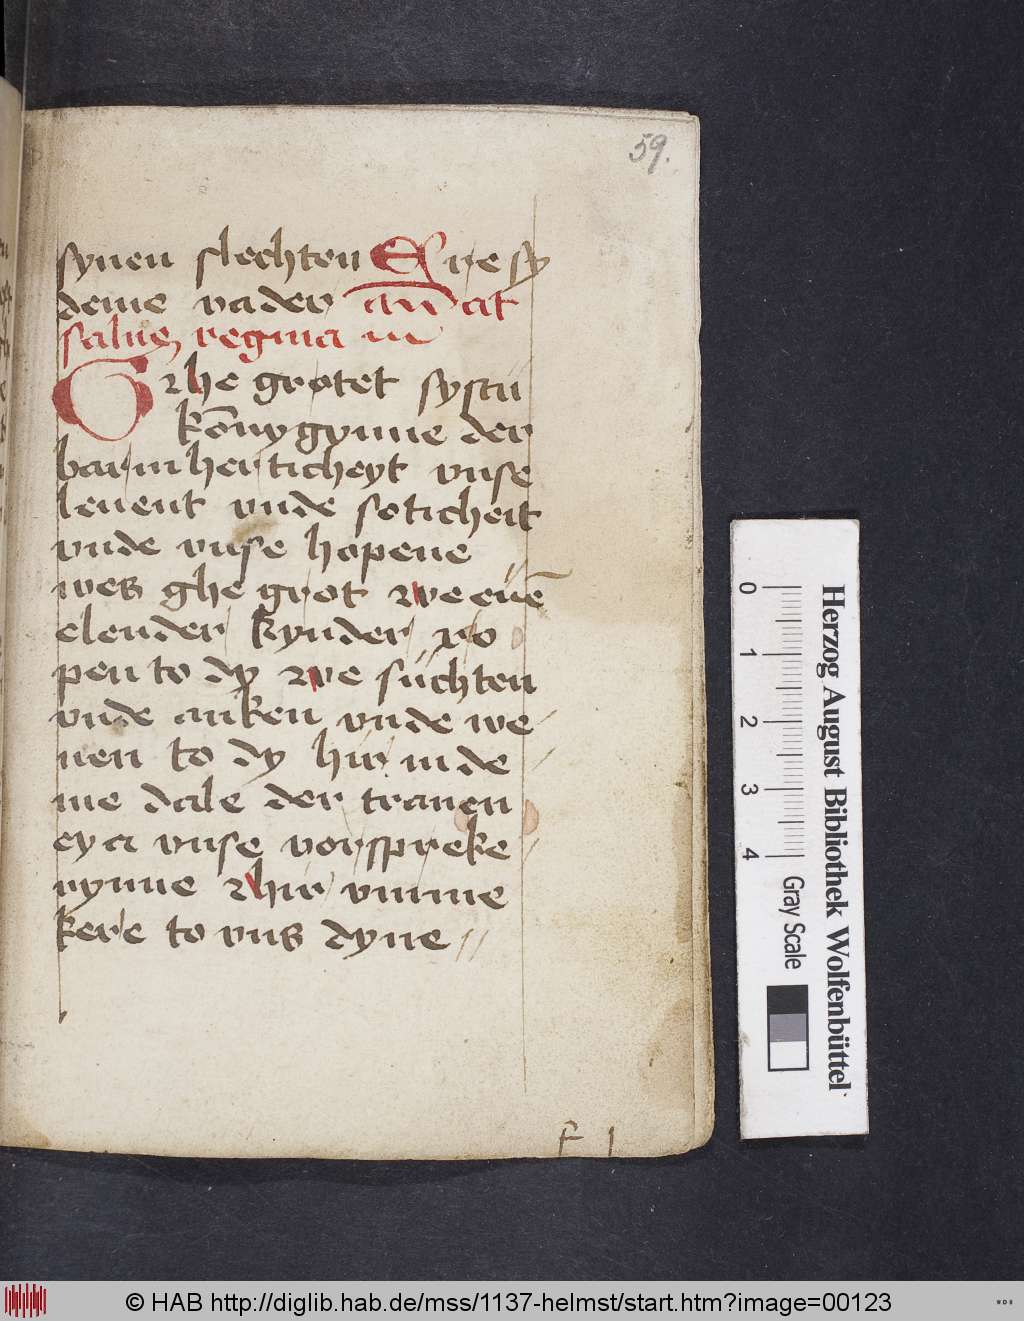 59.
synen slechten Ere sy
deme vader an̄ at
salue regina in
Ghe grotet systu
kōnygynne der
barmherticheyt vnse
leuent vnde soticheit
vnde vnse hopene
wes ghe grot we euē
elender kynder ro
pen to dy we suchten
vnde anken vnde we
nen to dy hir in de
me dale der tranen
eya vnse vorspreke
rynne hir vmme
kere to vns dyne
F 1
Herzog August Bibliothek Wolfenbüttel
0 1 2 3 4 Gray Scale
© HAB http://diglib.hab.de/mss/1137-helmst/start.htm?image=00123